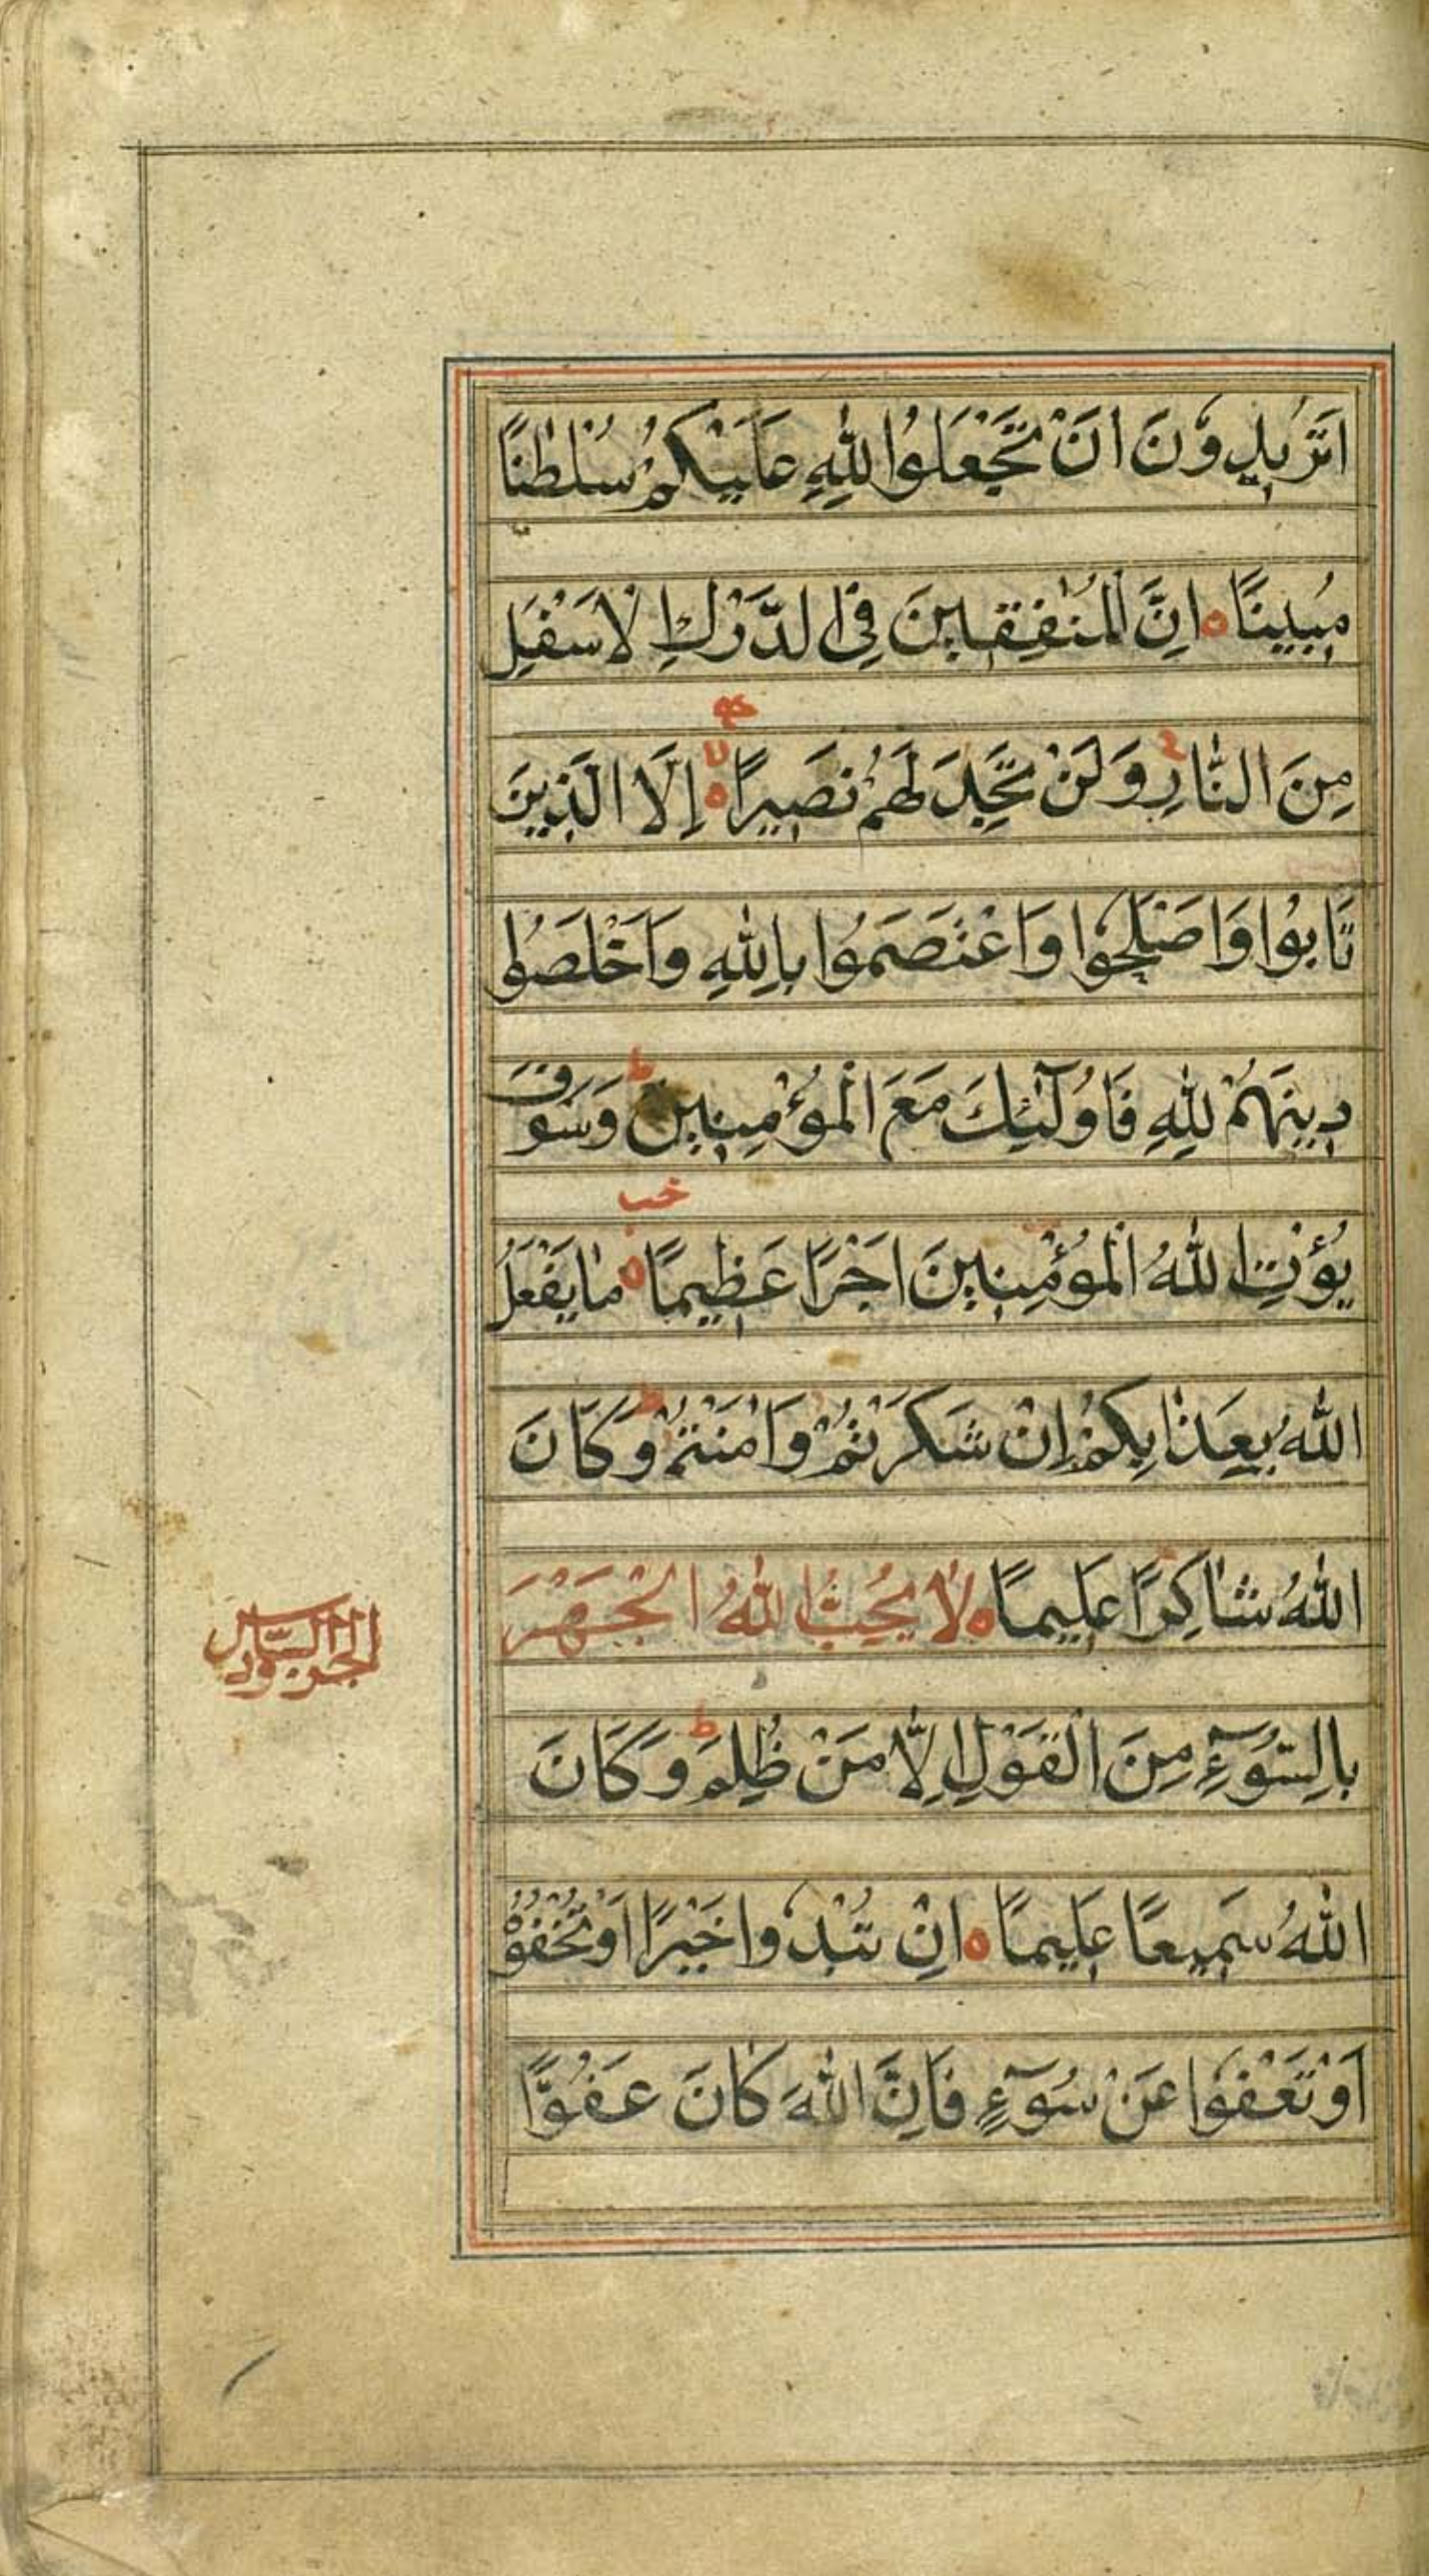 اَتُرِيدُونَ اَنْ تَجْعَلُوا لِلّٰهِ عَلَيْكُمْ سُلْطٰنًا
مُبِينًا ه اِنَّ الْمُنٰفِقِينَ فِي الدَّرْكِ الْاَسْفَلِ
مِنَ النَّارِ وَلَنْ تَجِدَ لَهُمْ نَصِيرًا ه اِلَّا الَّذِينَ
تَابُوا وَاَصْلَحُوا وَاعْتَصَمُوا بِاللّٰهِ وَاَخْلَصُوا
دِينَهُمْ لِلّٰهِ فَاُولٰٓئِكَ مَعَ الْمُؤْمِنِينَ ط وَسَوْفَ
يُؤْتِ اللّٰهُ الْمُؤْمِنِينَ اَجْرًا عَظِيمًا ه مَا يَفْعَلُ
اللّٰهُ بِعَذَابِكُمْ اِنْ شَكَرْتُمْ وَاٰمَنْتُمْ ط وَكَانَ
اللّٰهُ شَاكِرًا عَلِيمًا ه لَا يُحِبُّ اللّٰهُ الْجَهْرَ
الجزؤ السادس
بِالسُّوٓءِ مِنَ الْقَوْلِ اِلَّا مَنْ ظُلِمَ ط وَكَانَ
اللّٰهُ سَمِيعًا عَلِيمًا ه اِنْ تُبْدُوا خَيْرًا اَوْ تُخْفُوْهُ
اَوْ تَعْفُوا عَنْ سُوٓءٍ فَاِنَّ اللّٰهَ كَانَ عَفُوًّا